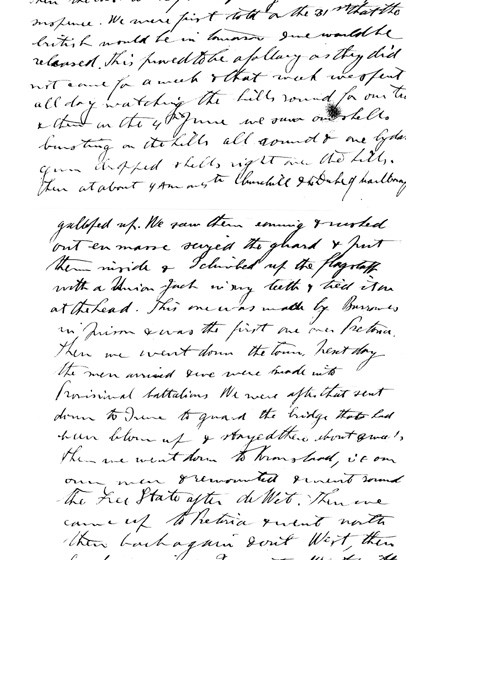 suspense. We were first told on the 31st that the
british would be in tomorrow & we would be
released. This proved to be a fallacy as they did
not come for a week & that week we spent
all day watching the hills round for our
& then on the 4th June we saw our shells
bursting on the hills all round & one
gun dropped shells right over the hills.
Then at about 9 AM Churchill & the Duke of Marlborough
galloped up. We saw them coming & rushed
out en masse seized the guard & put
them inside & I climbed up the flagstaff
with a Union Jack in my teeth & tied it on
at the head. This one was made by Burrows
in prison & was the first one over Pretoria.
Then we went down the town. Next day
the men arrived & we were made into
Provisional battalions We were after that sent
down to Irene to guard the bridge that had
been blown up & stayed there about
then we went down to Kroonstad,
& remounted & went round
the Free State after de Wet. Then we
came up to Pretoria & went north
then back again & out West, then